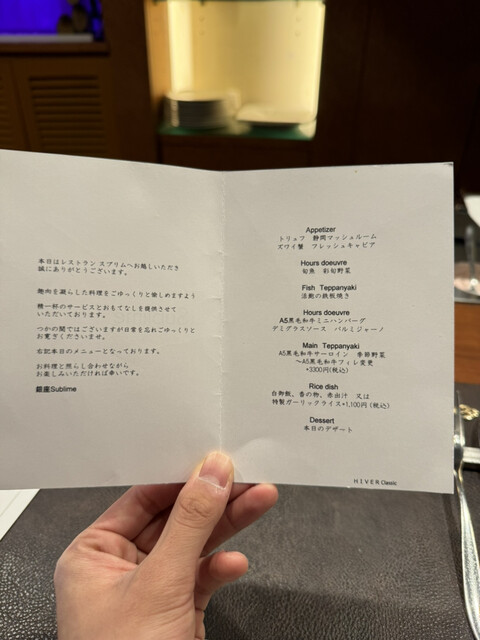 本日はレストラン スブリムへお越しいただき
誠にありがとうございます。
趣向を凝らした料理をごゆっくりと愉しめますよう
精一杯のサービスとおもてなしを提供させて
いただいております。
つかの間ではございますが日常を忘れごゆっくりと
お寛ぎくださいませ。
右記本日のメニューとなっております。
お料理と照らし合わせながら
お楽しみいただければ幸いです。
銀座Sublime
Appetizer
トリュフ 静岡マッシュルーム
ズワイ蟹 フレッシュキャビア
Hours doeuvre
旬魚 彩旬野菜
Fish Teppanyaki
活鮑の鉄板焼き
Hours doeuvre
A5黒毛和牛ミニハンバーグ
デミグラスソース パルミジャーノ
Main Teppanyaki
A5黒毛和牛サーロイン 季節野菜
〜A5黒毛和牛フィレ変更
+3300円(税込)
Rice dish
白御飯、香の物、赤出汁 又は
特製ガーリックライス+1,100円(税込)
Dessert
本日のデザート
HIVER Classic